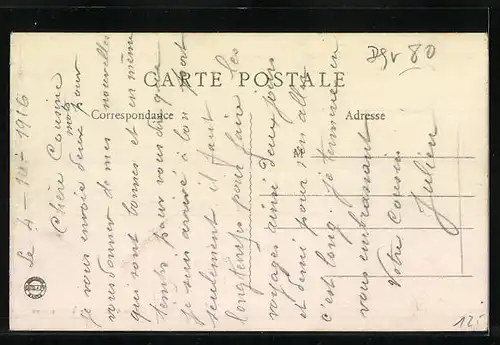 CARTE POSTALE
Correspondance
Adresse
le 4-10-1916
Chère Cousine
je vous envoie deux mots pour
vous donner de mes nouvelles
qui sont bonnes et en même
temps pour vous dire que
je suis arrivé à bon port
seulement il faut
longtemps pour faire les
voyages ainsi deux jours
et demi pour s'en aller
c'est long je termine en
vous embrassant
Votre cousin
Julien
80
12,-